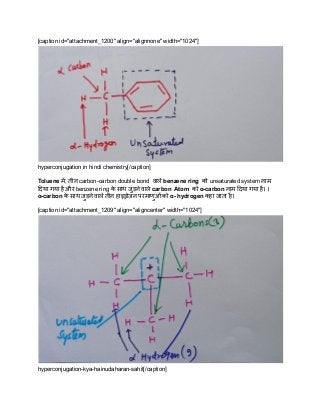 [caption id="attachment_1200" align="alignnone" width="1024"]
α Carbon
H
H – C
H
α-Hydrogen
Unsaturated
System
hyperconjugation in hindi chemistry[/caption]
Toluene में, तीन carbon-carbon double bond वाले benzene ring को unsaturated system नाम
दिया गया है और benzene ring के साथ जुड़ने वाले carbon Atom को α-carbon नाम दिया गया है। ।
α-carbon के साथ जुड़ने वाले तीन हाइड्रोजन परमाणुओं को α- hydrogen कहा जाता है।
[caption id="attachment_1209" align="aligncenter" width="1024"]
α-Carbons(3)
H + H
H – C – C – C – H
H H
Unsaturated
System
H – C – H
H
α Hydrogen(9)
hyperconjugation-kya-hainudaharan-sahit[/caption]